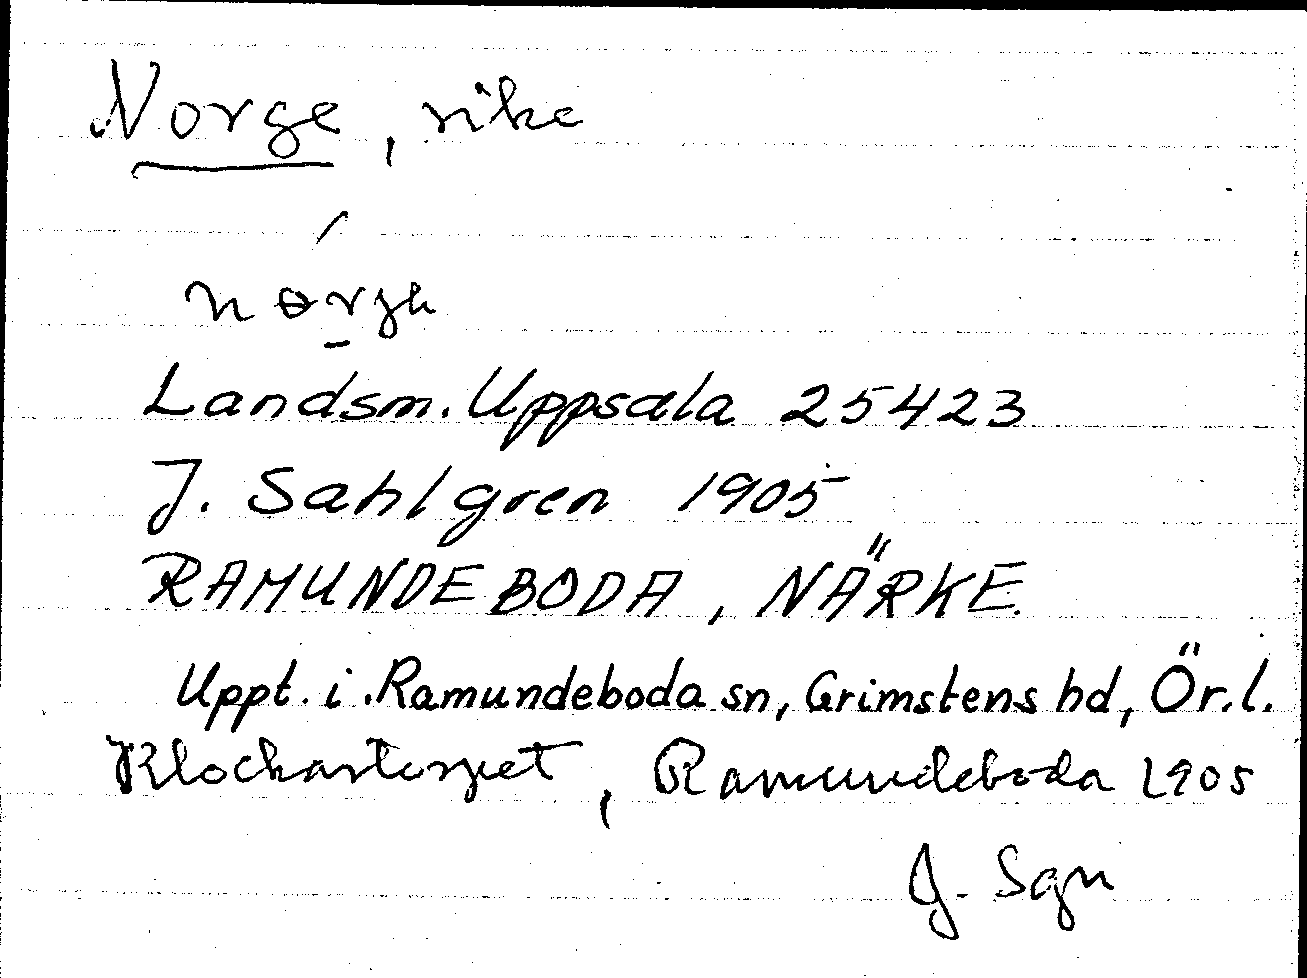 Norge, rike
Landsm. Uppsala 25423
J. Sahlgren 1905
RAMUNDEBODA, NÄRKE.
Uppt. i. Ramundeboda sn, Grimstens hd, Ör. l.
Klockartorpet, Ramundeboda 1905
J. Sgn